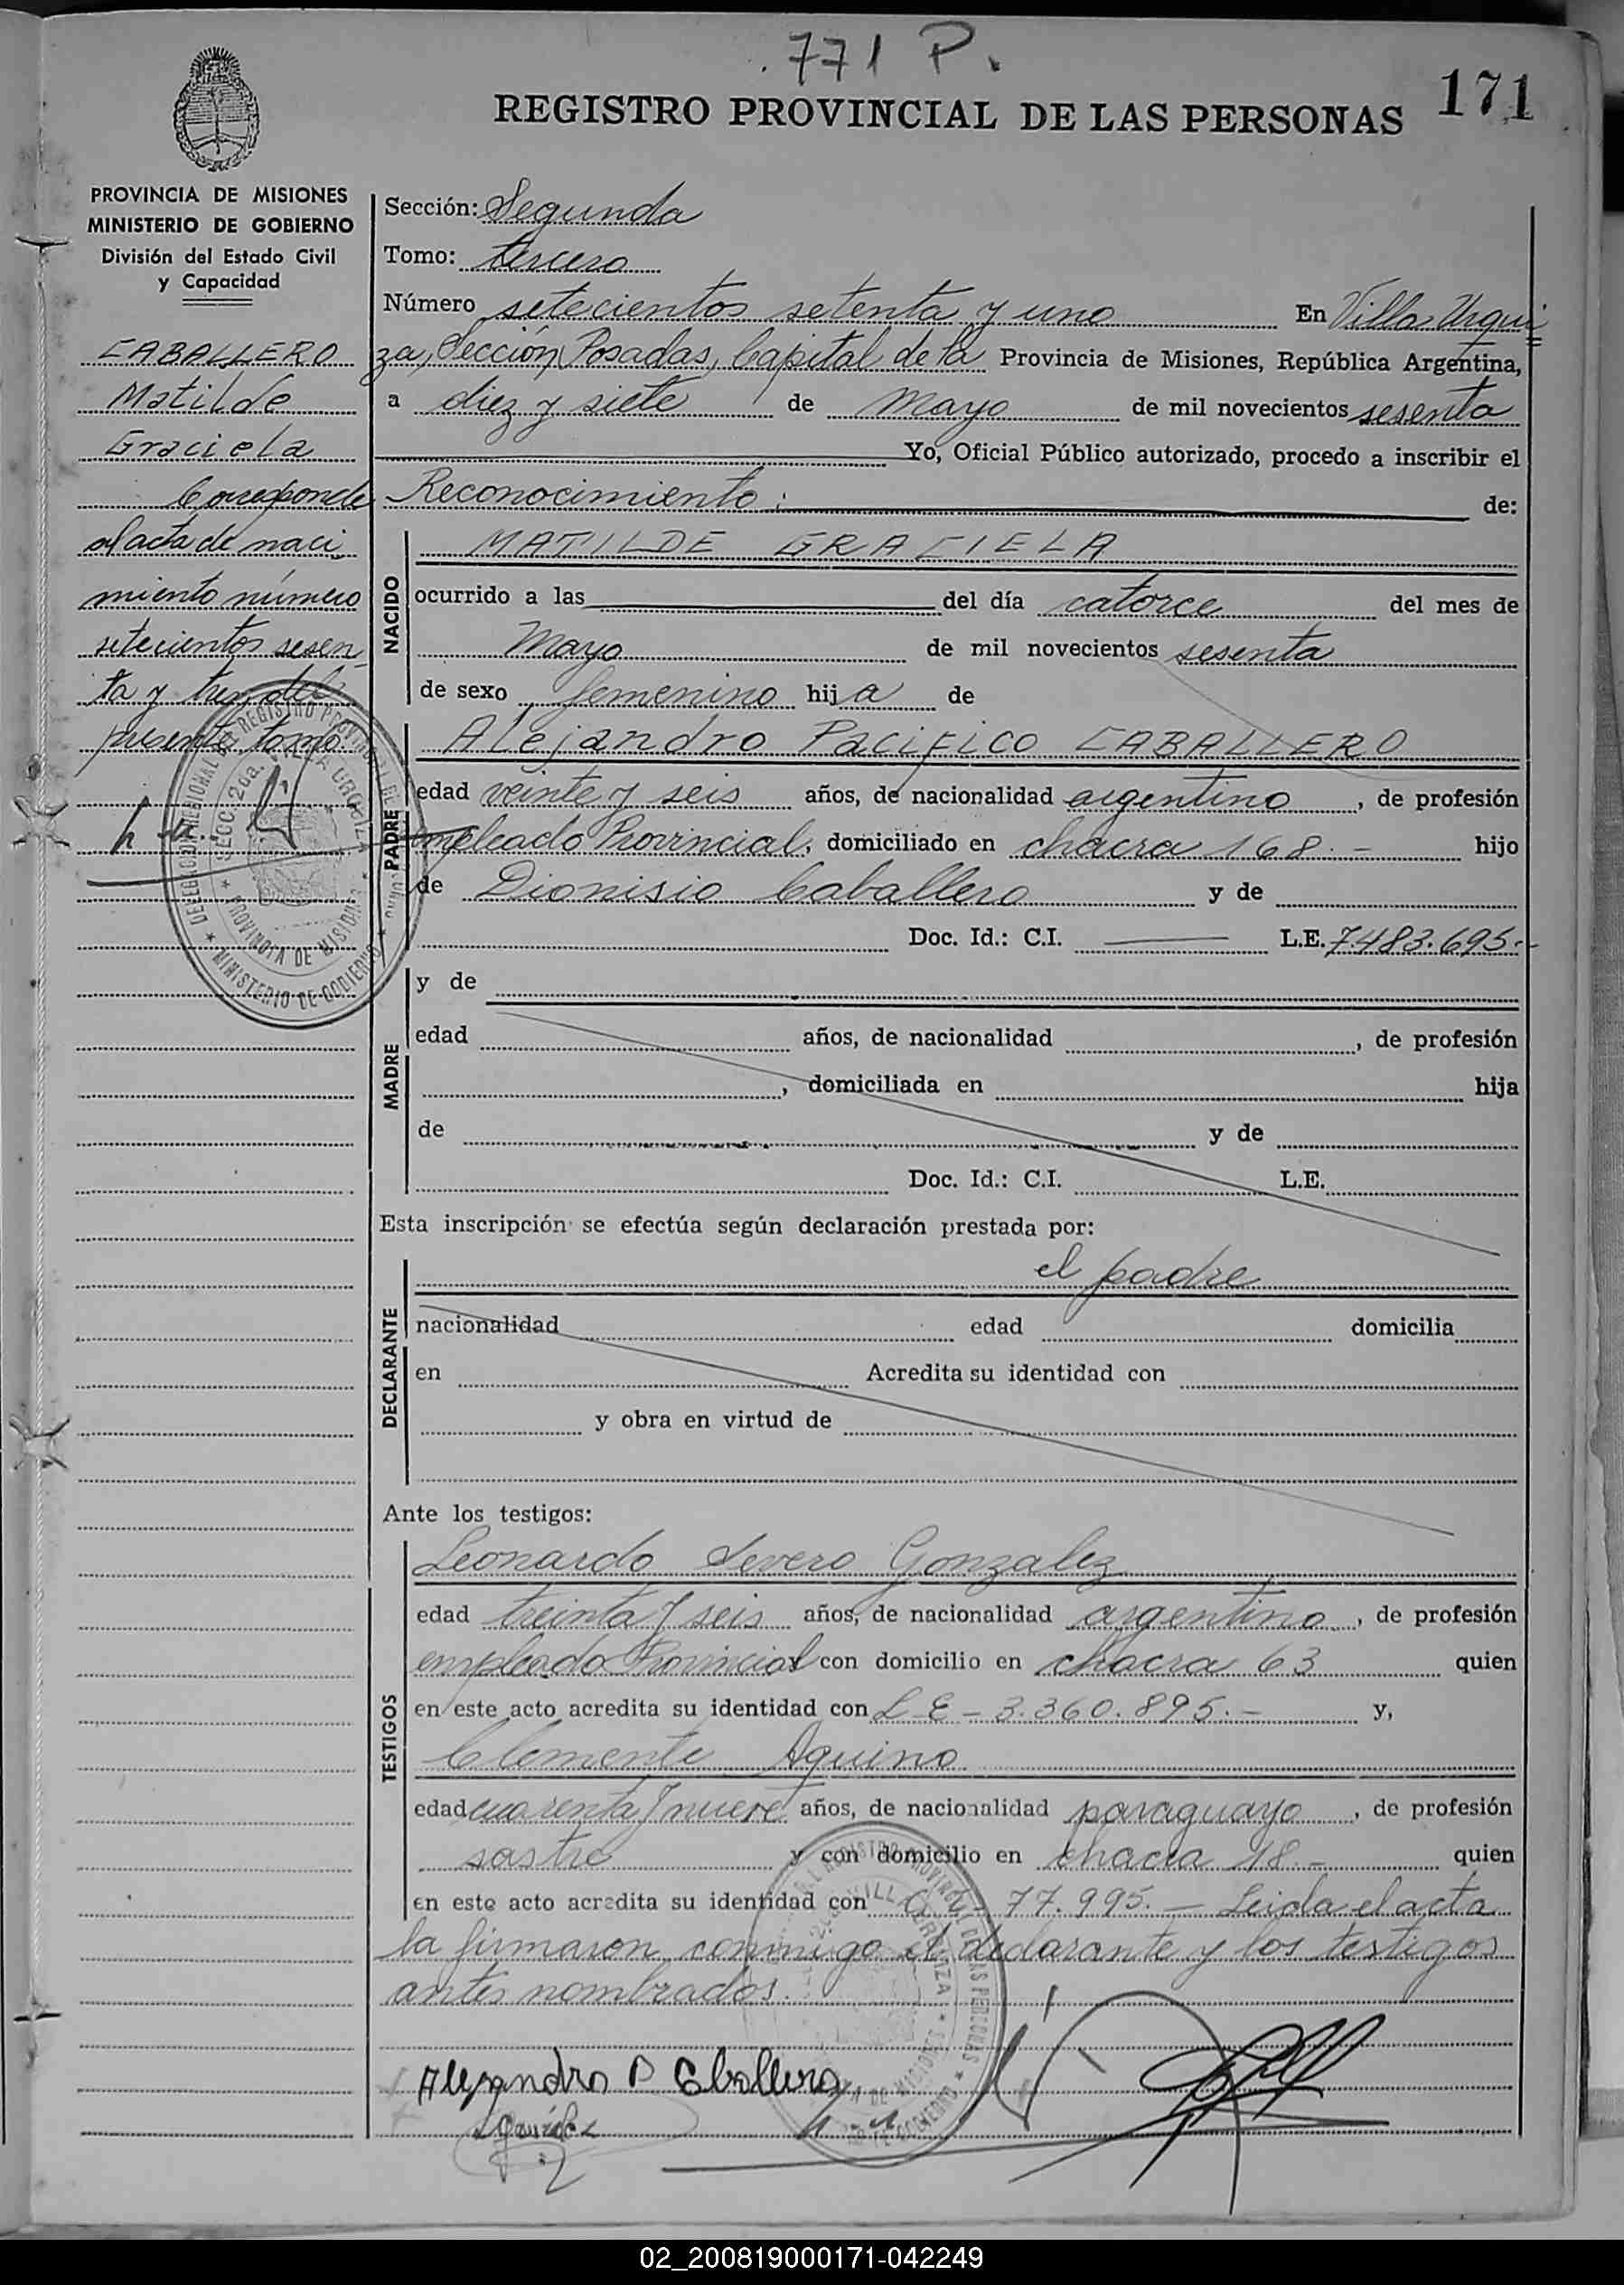 .771 P.
REGISTRO PROVINCIAL DE LAS PERSONAS 171
PROVINCIA DE MISIONES
MINISTERIO DE GOBIERNO
División del Estado Civil
y Capacidad
CABALLERO
Matilde
Graciela
Corresponde
al acta de naci
miento número
setecientos sesen
ta y tres del
presente tomo.
Sección: Segunda
Tomo: tercero
Número setecientos setenta y uno En Villa Urqui
za, Sección Posadas, Capital de la Provincia de Misiones, República Argentina,
a diez y siete de Mayo de mil novecientos sesenta
Yo, Oficial Público autorizado, procedo a inscribir el
Reconocimiento: de:
NACIDO
MATILDE GRACIELA
ocurrido a las del día catorce del mes de
Mayo de mil novecientos sesenta
de sexo femenino hija de
PADRE
Alejandro Pacifico CABALLERO
edad veinte y seis años, de nacionalidad argentino, de profesión
empleado Provincial, domiciliado en chacra 168.- hijo
de Dionisio Caballero y de
Doc. Id.: C.I. L.E. 7.483.695.-
MADRE
y de
edad años, de nacionalidad , de profesión
, domiciliada en hija
de y de
Doc. Id.: C.I. L.E.
Esta inscripción se efectúa según declaración prestada por:
DECLARANTE
el padre
nacionalidad edad domicilia
en Acredita su identidad con
y obra en virtud de
Ante los testigos:
TESTIGOS
Leonardo Severo Gonzalez
edad treinta y seis años, de nacionalidad argentino, de profesión
empleado Provincial y con domicilio en chacra 63 quien
en este acto acredita su identidad con L E - 3.360.895.- y,
Clemente Aquino
edad cuarenta y nueve años, de nacionalidad paraguayo, de profesión
sastre y con domicilio en chacra 18.- quien
en este acto acredita su identidad con 77.995.- Leida el acta
la firmaron conmigo el declarante y los testigos
antes nombrados.
Alejandro P Caballero
02_200819000171-042249